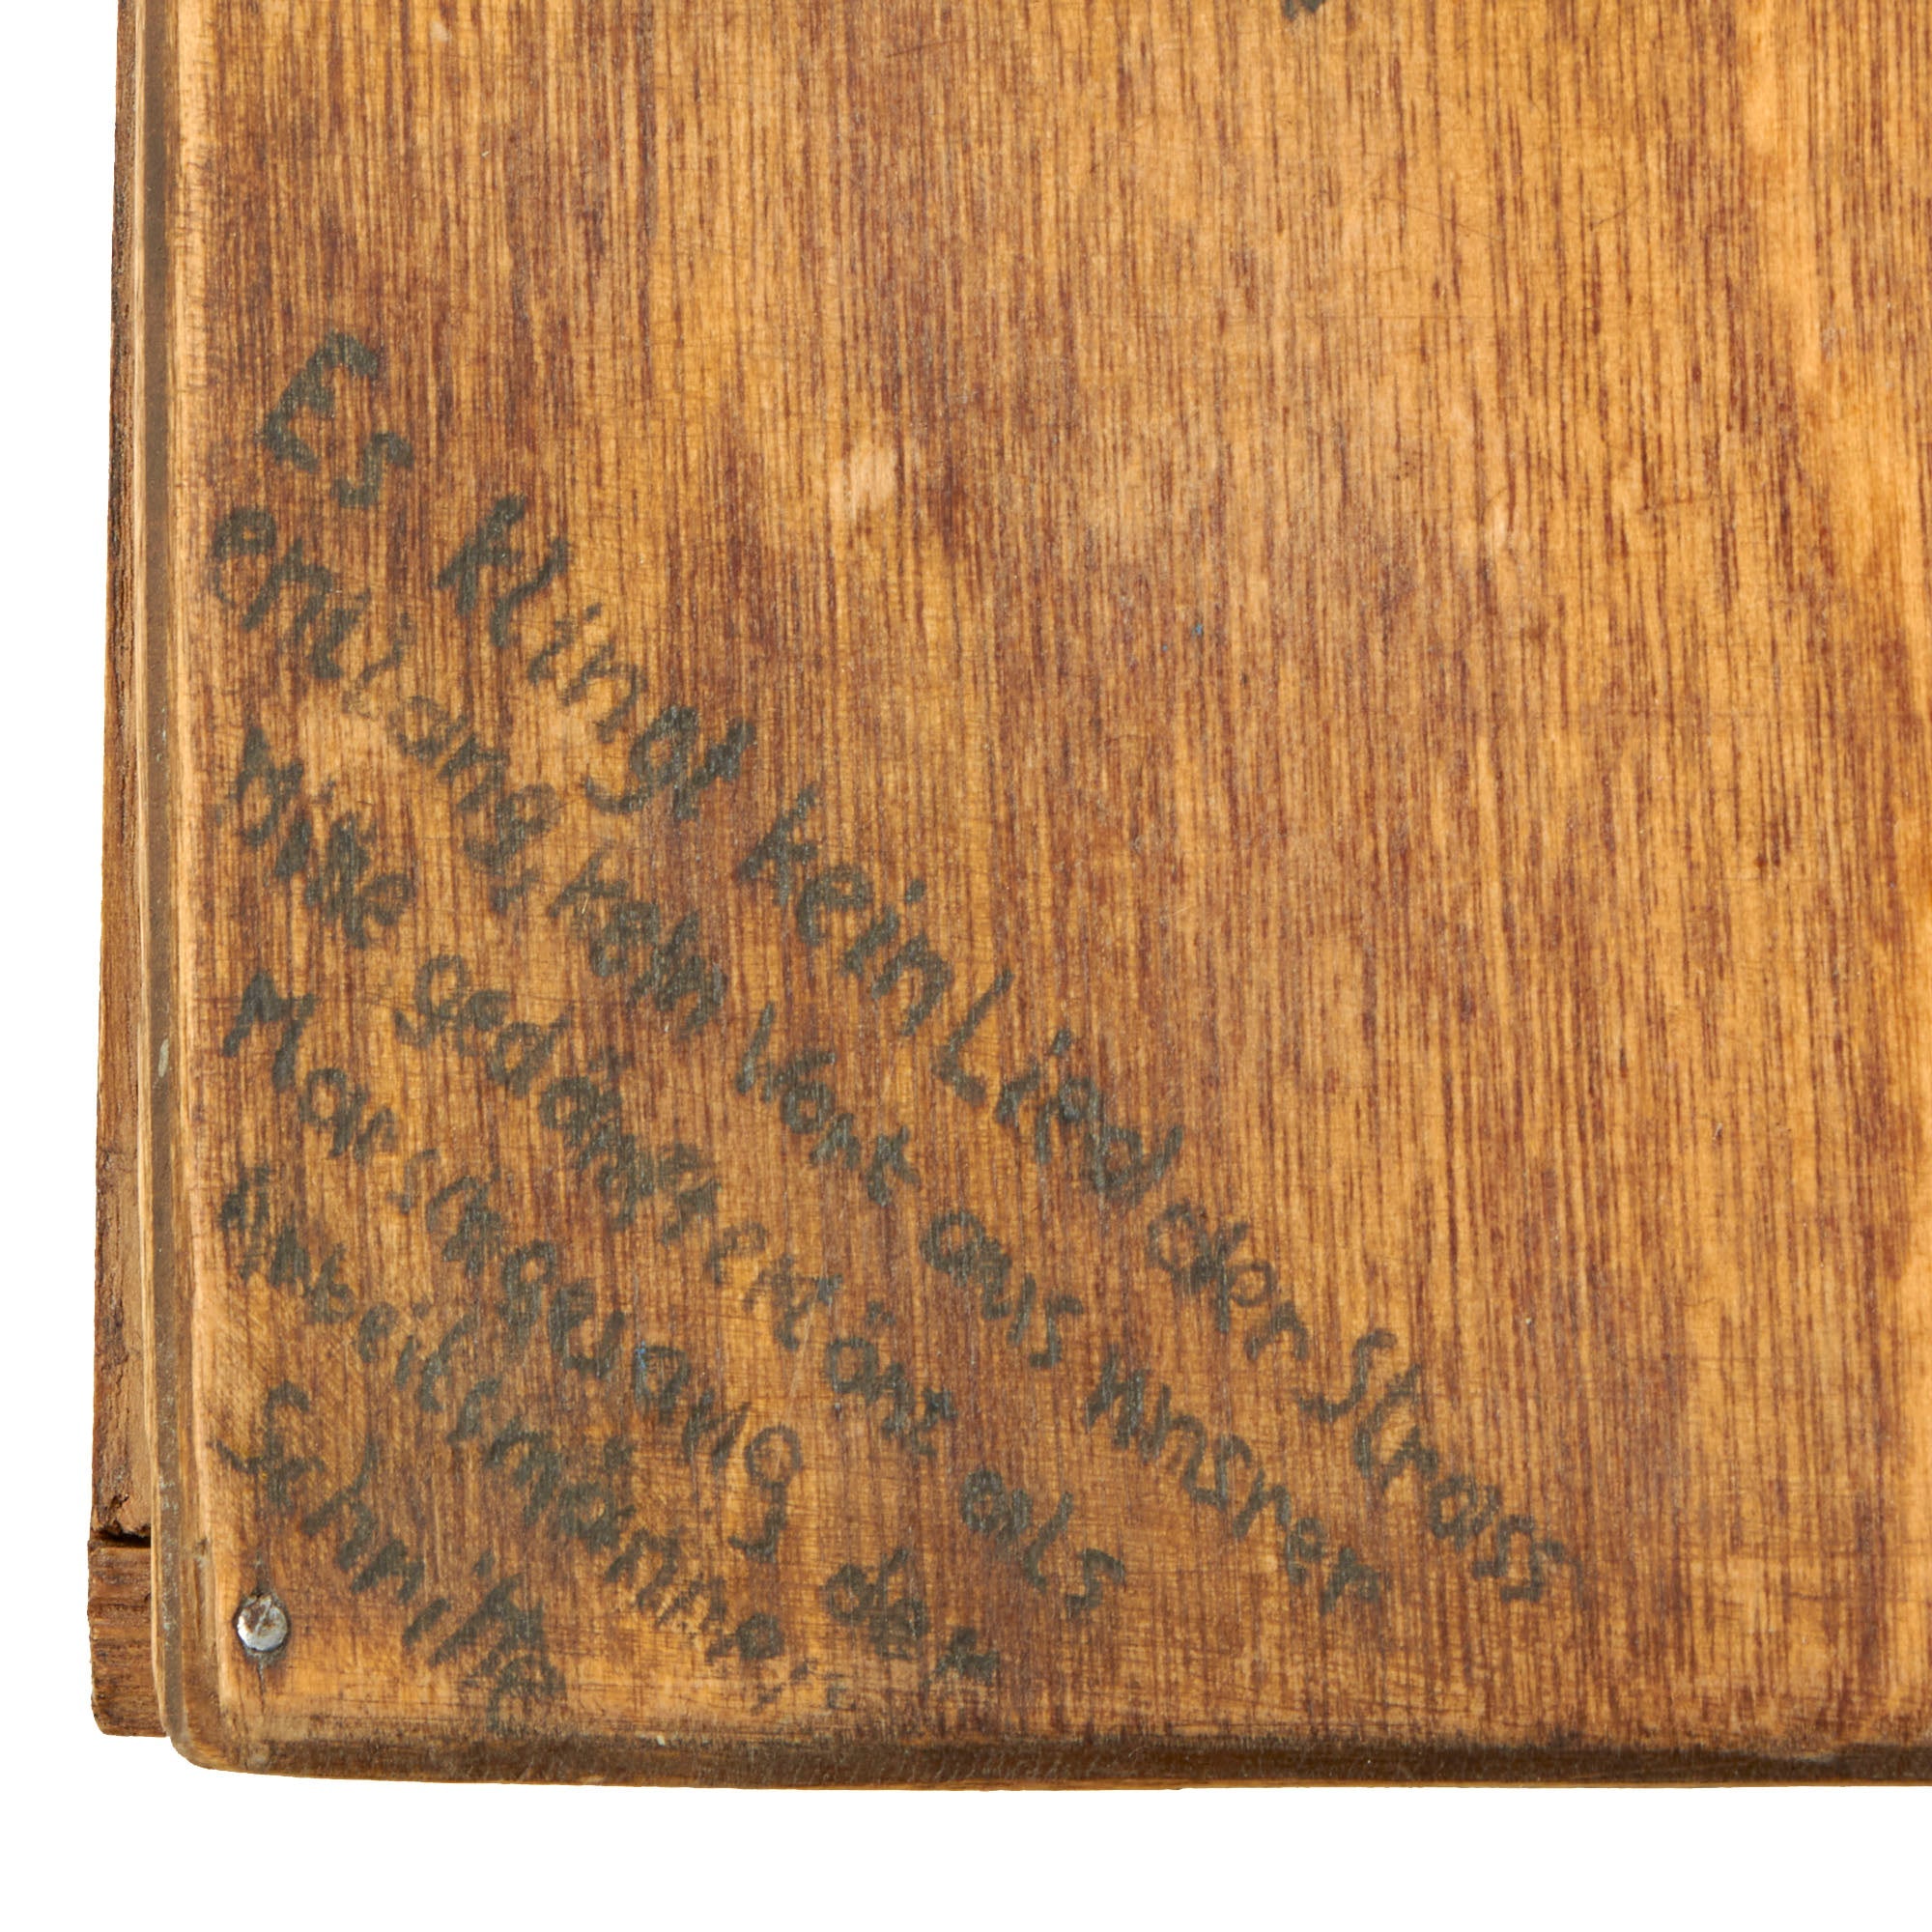 Es klingt kein Lied der Strass
entlang kein Wort aus unser
Mitte gedämpfte Klänz als
Marschgesang der
Arbeitsmänner
Schritte